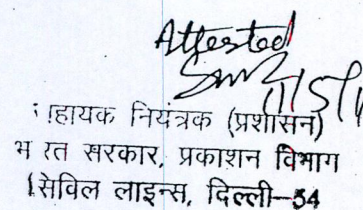 Attested
सहायक नियंत्रक (प्रशासन)
भारत सरकार, प्रकाशन विभाग
सिविल लाइन्स, दिल्ली-54